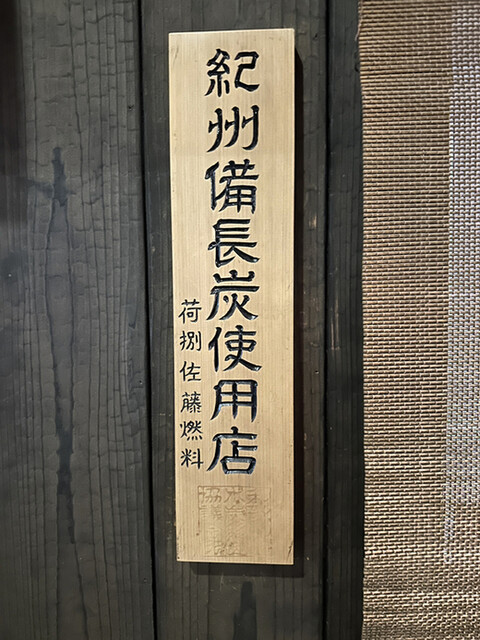 紀州備長炭使用店
荷捌佐藤燃料